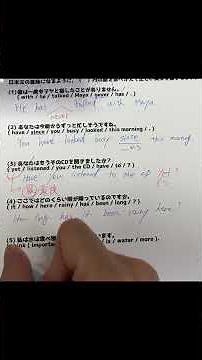 (1) 彼は一度もマヤと話したことがありません。
( with / he / talked / Maya / never / has / . )
He has talked with Maya.
never
(2) あなたは今朝からずっと忙しそうですね。
( have / since / you / busy / looked / this morning / . )
You have looked busy since this morning
(3) あなたはもうそのCDを聞きましたか？
( yet / listened / you / the CD / have / to / ? )
Have you listened to the yet?
(4) ここではどのくらい雨が降っているのですか。
( it / how / here / rainy / has / been / long / ? )
How long has it been rainy here?
(5) 私は水は食べ
think [ important / is / water / more ].